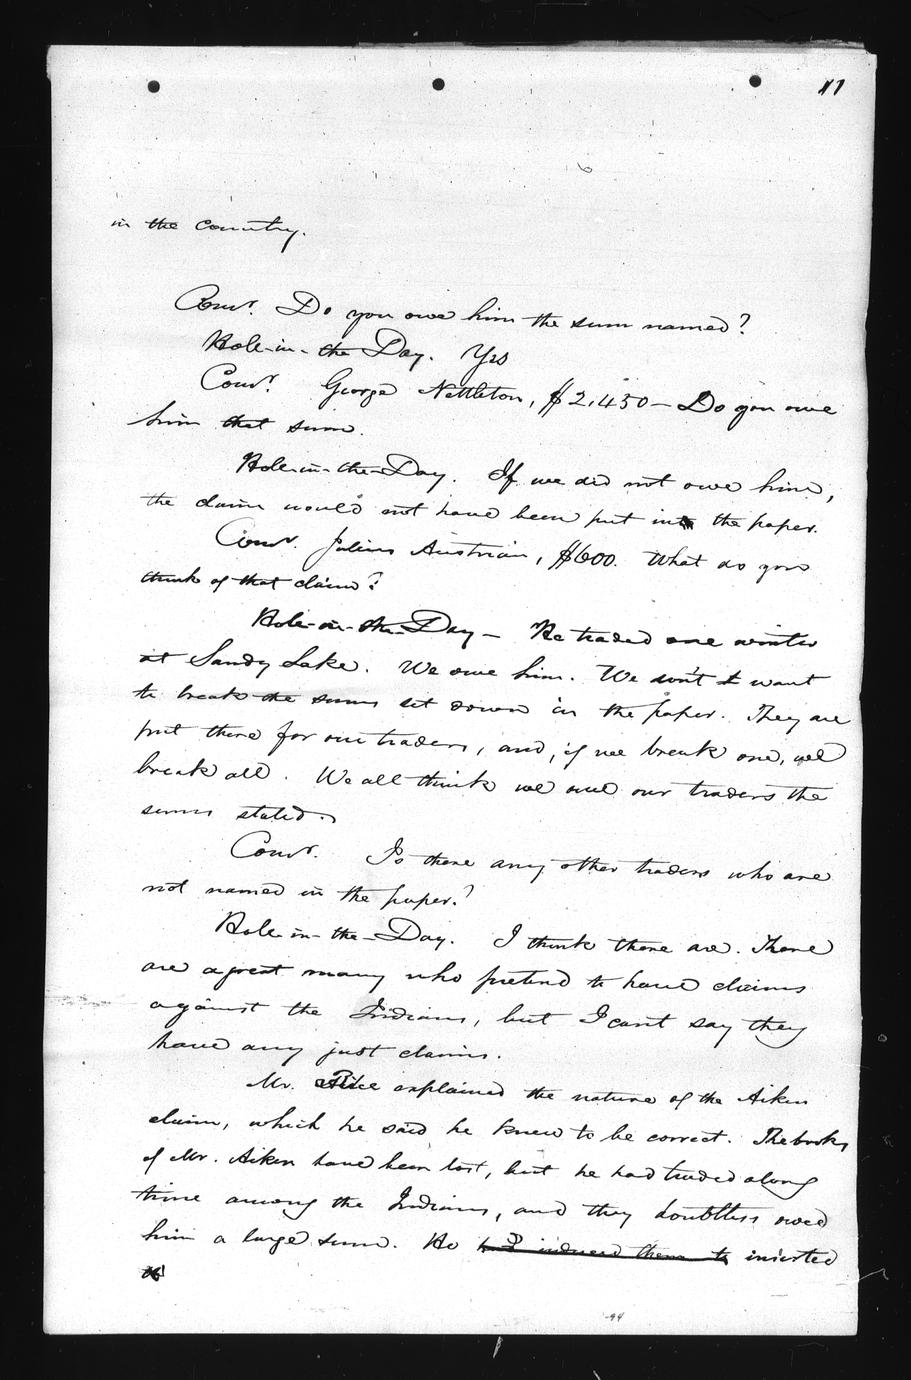 17
in the country.
Comr. Do you owe him the sum named?
Hole-in-the Day. Yes
Comr. George Nettleton, $2,450 — Do you owe
him that sum.
Hole-in-the-Day. If we did not owe him,
the claim would not have been put in the paper.
Comr. Julius Austrian, $600. What do you
think of that claim?
Hole-in-the-Day — He traded one winter
at Sandy Lake. We owe him. We don't want
to break the sums set down in the paper. They are
put there for our traders, and, if we break one, we
break all. We all think we owe our traders the
sums stated.
Comr. Is there any other traders who are
not named in the paper?
Hole-in-the-Day. I think there are. There
are a great many who pretend to have claims
against the Indians, but I can't say they
have any just claims.
Mr. Rice explained the nature of the Aiken
claim, which he said he knew to be correct. The books
of Mr. Aiken have been lost, but he had traded along
time among the Indians, and they doubtless owed
him a large sum. He I induced them to inserted
94